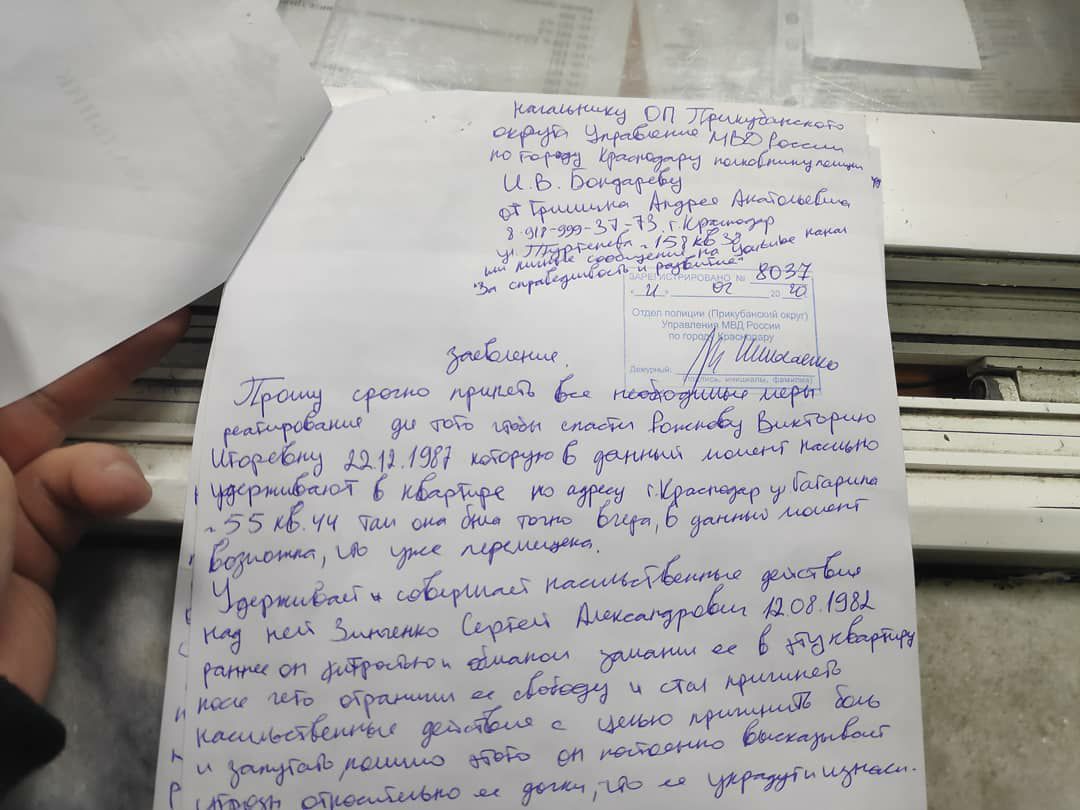 Начальнику ОП Прикубанского
округа Управление МВД России
по городу Краснодару полковнику полиции
И.В. Бондареву
от Гришина Андрея Анатольевича
8-918-999-37-73. г. Краснодар
ул. Тургенева 158 кв 38
или личные сообщения на канал
"За справедливость и развитие"
ЗАРЕГИСТРИРОВАНО № 8037
" 21 " 02 20 20
Отдел полиции (Прикубанский округ)
Управления МВД России
по городу Краснодару
Дежурный:
(подпись, инициалы, фамилия)
Заявление.
Прошу срочно принять все необходимые меры
реагирование для того чтобы спасти Рожкову Викторию
Игоревну 22.12.1987 которую в данный момент насильно
удерживают в квартире по адресу г.Краснодар ул Гагарина
55 кв.44 там она была точно вчера, в данный момент
возможна, что уже перемещена.
Удерживает и совершает насильственные действия
над ней Зинченко Сергей Александрович 12.08.1982
ранее он хитростью и обманом заманил ее в эту квартиру
после чего ограничил ее свободу и стал причинять
насильственные действия с целью причинить боль
и запугать, помимо этого он постоянно высказывает
угрозы относительно ее дочки, что ее украдут и изнаси-